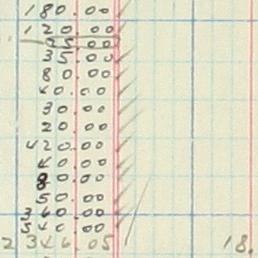 180.00
120.00
55.00
35.00
80.00
40.00
30.00
20.00
420.00
40.00
80.00
50.00
36.00
54.00
2346.05 18.